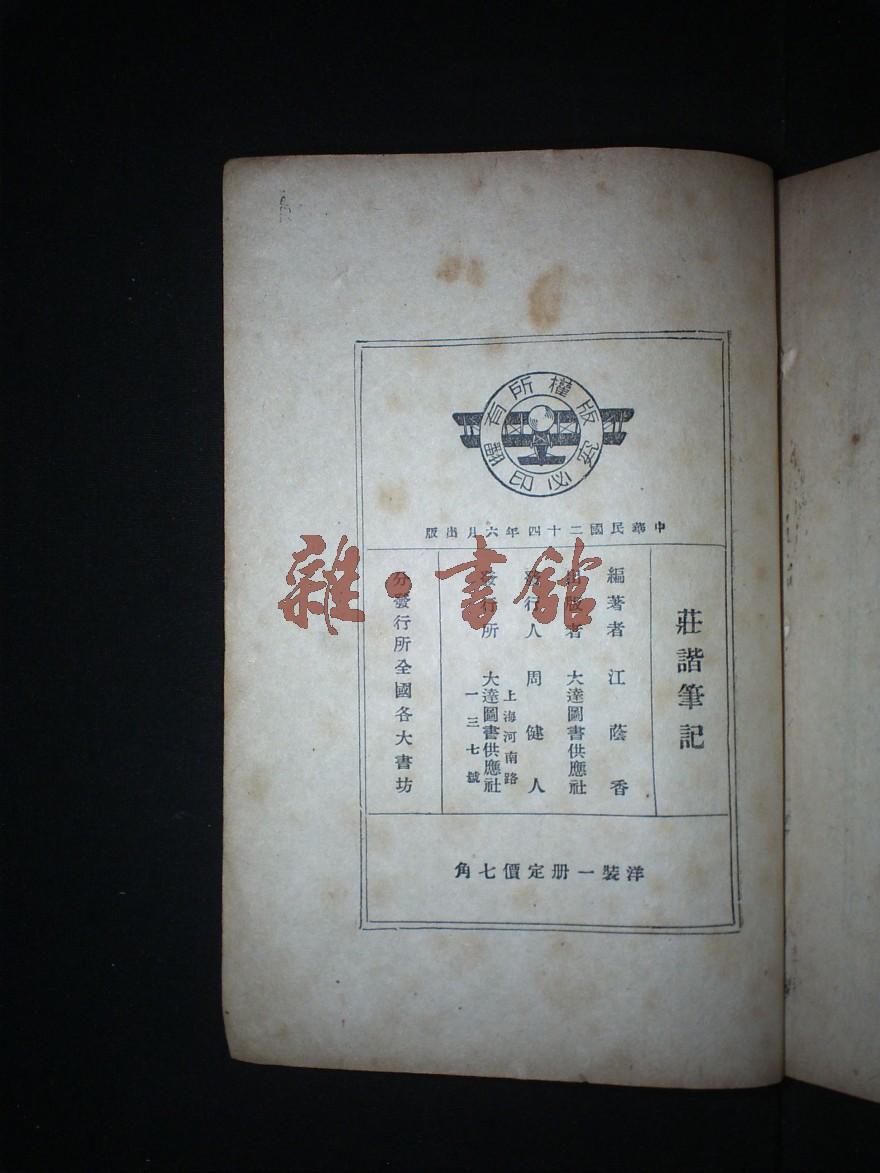 版權所有
翻印必究
中華民國二十四年六月出版
莊諧筆記
編著者 江蔭香
出版者 大達圖書供應社
發行人 周健人
發行所 上海河南路
一三七號
大達圖書供應社
分發行所全國各大書坊
洋裝一册定價七角
雜·書館